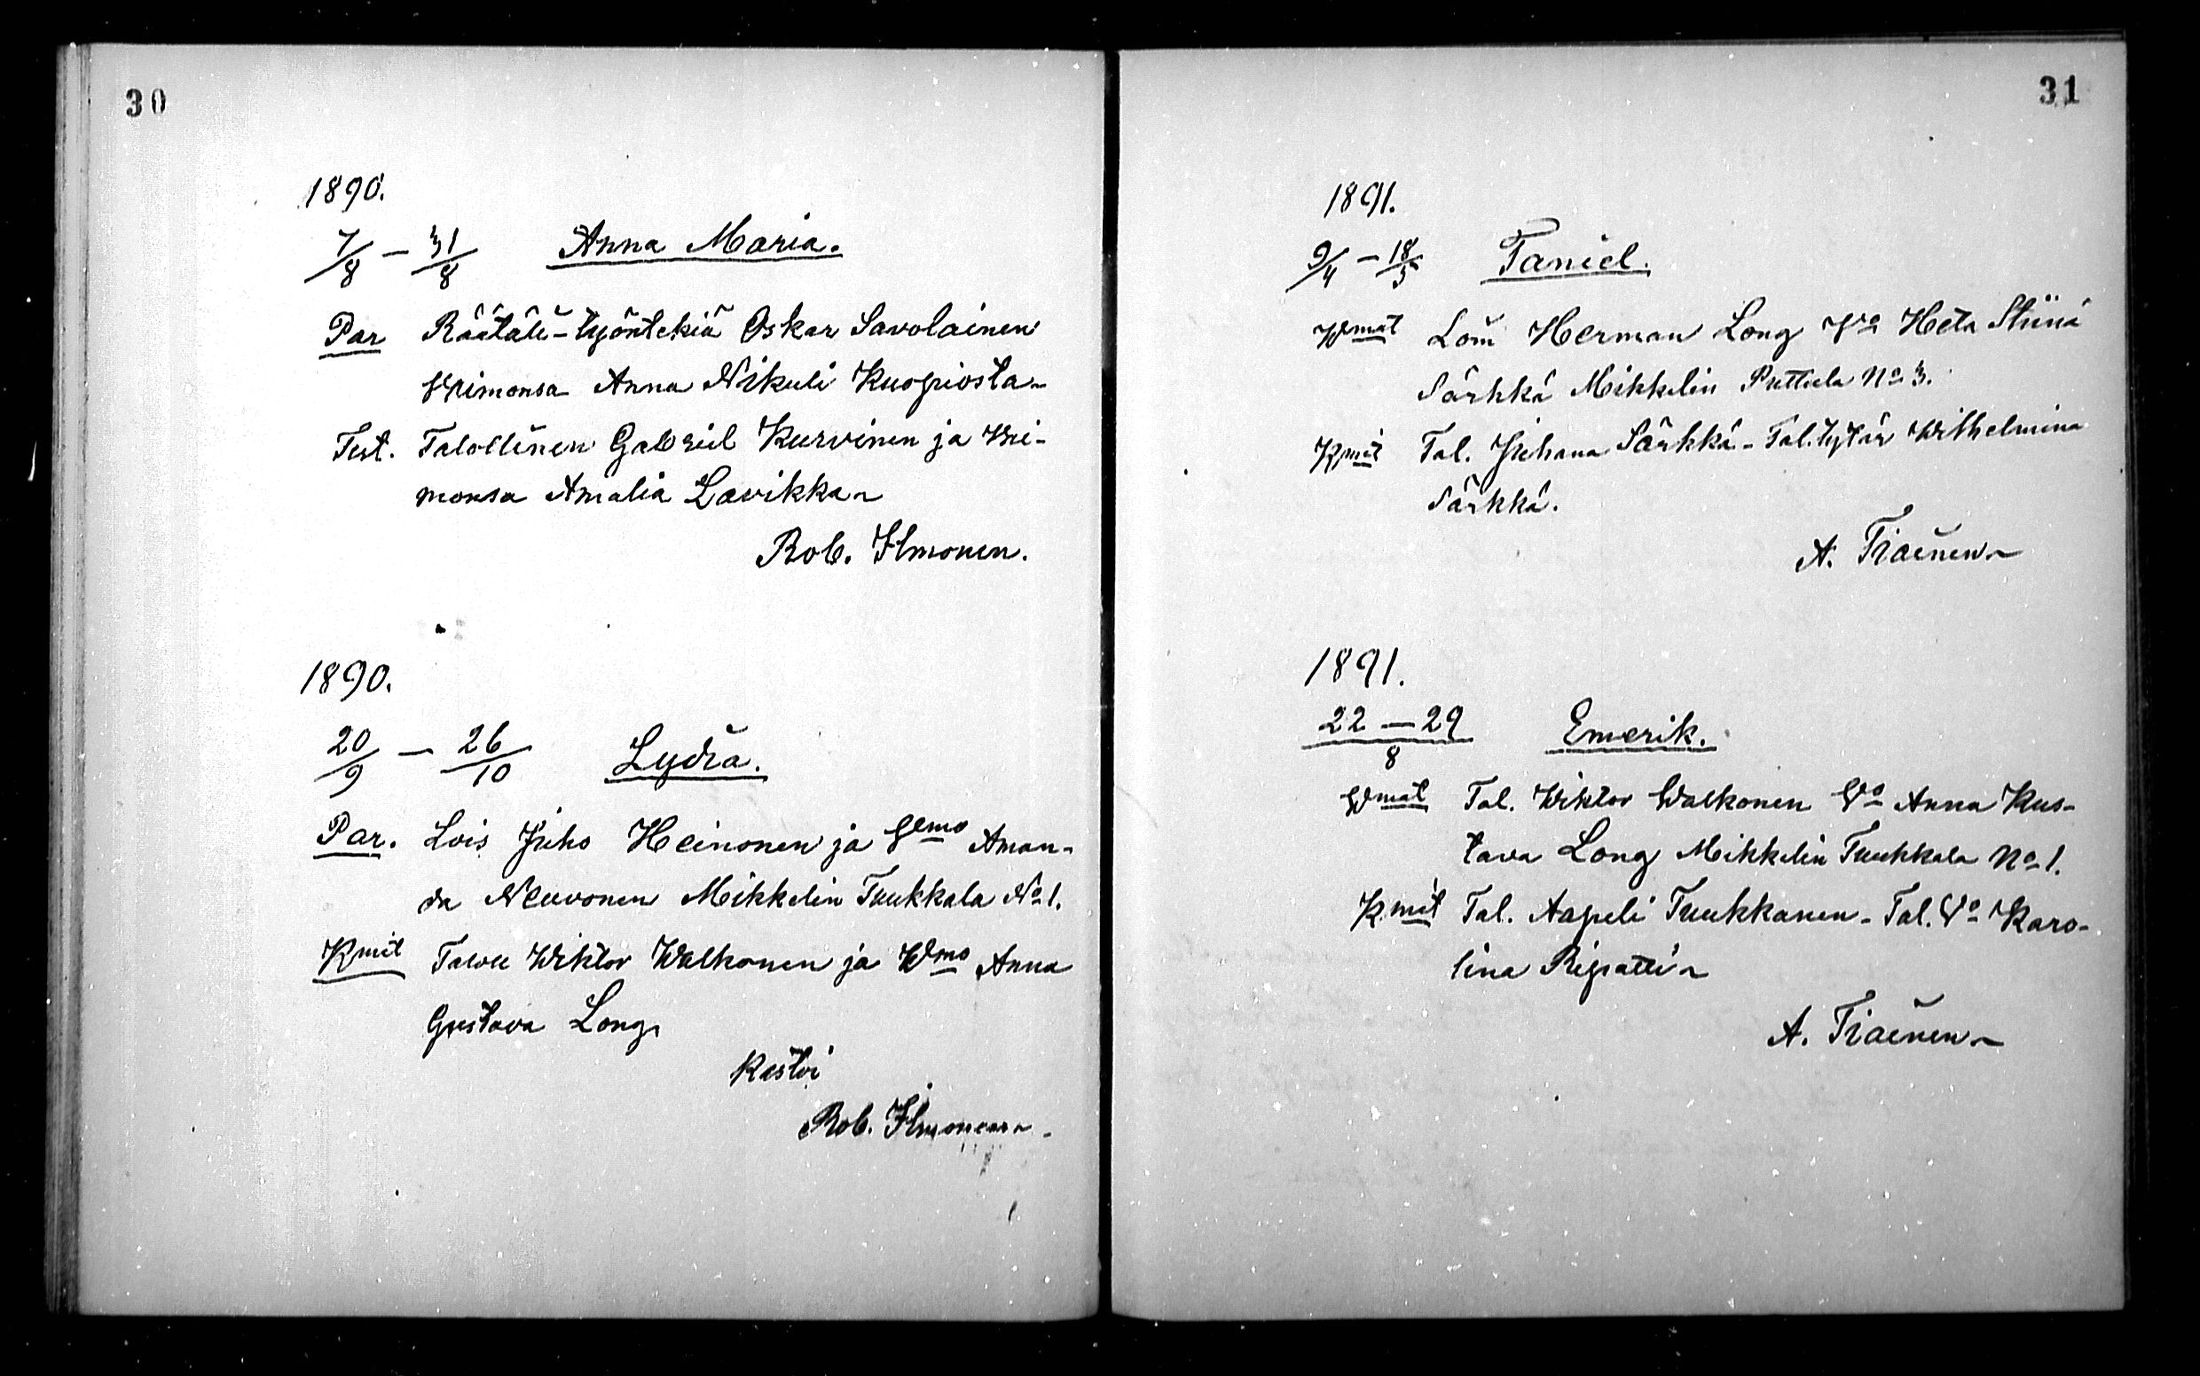 30
1890.
7/8 – 31/8 Anna Maria.
Par Räätäli-työntekiä Oskar Savolainen
Vaimonsa Anna Nikuli Kuopiosta
Test. Talollinen Gabriel Kurvinen ja Vai-
monsa Amalia Lavikka
Rob. Ilmonen.
1890.
20/9 – 26/10 Lydia.
Par. Lois Juho Heinonen ja Vmo Aman-
da Neuvonen Mikkelin Tuukkala No 1.
Kmit Wiktor Walkonen ja Wmo Anna
Gustava Long
Kastoi
Rob. Ilmonen
31
1891.
9/4 – 18/5 Taniel.
Wmat Loin Herman Long Vo Heta Stiina
Särkkä Mikkelin Puttula No 3.
Kmit Tal. Juhana Särkkä - Tal. tytär Wilhelmina
Särkkä.
A. Tiainen
1891.
22 – 29/8 Emerik.
Wmat Tal. Wiktor Walkonen Vo Anna Kus-
tava Long Mikkelin Tuukkala No 1.
Kmit Tal. Aapeli Tuukkanen - Tal. Vo Karo-
lina Ripatti
A. Tiainen